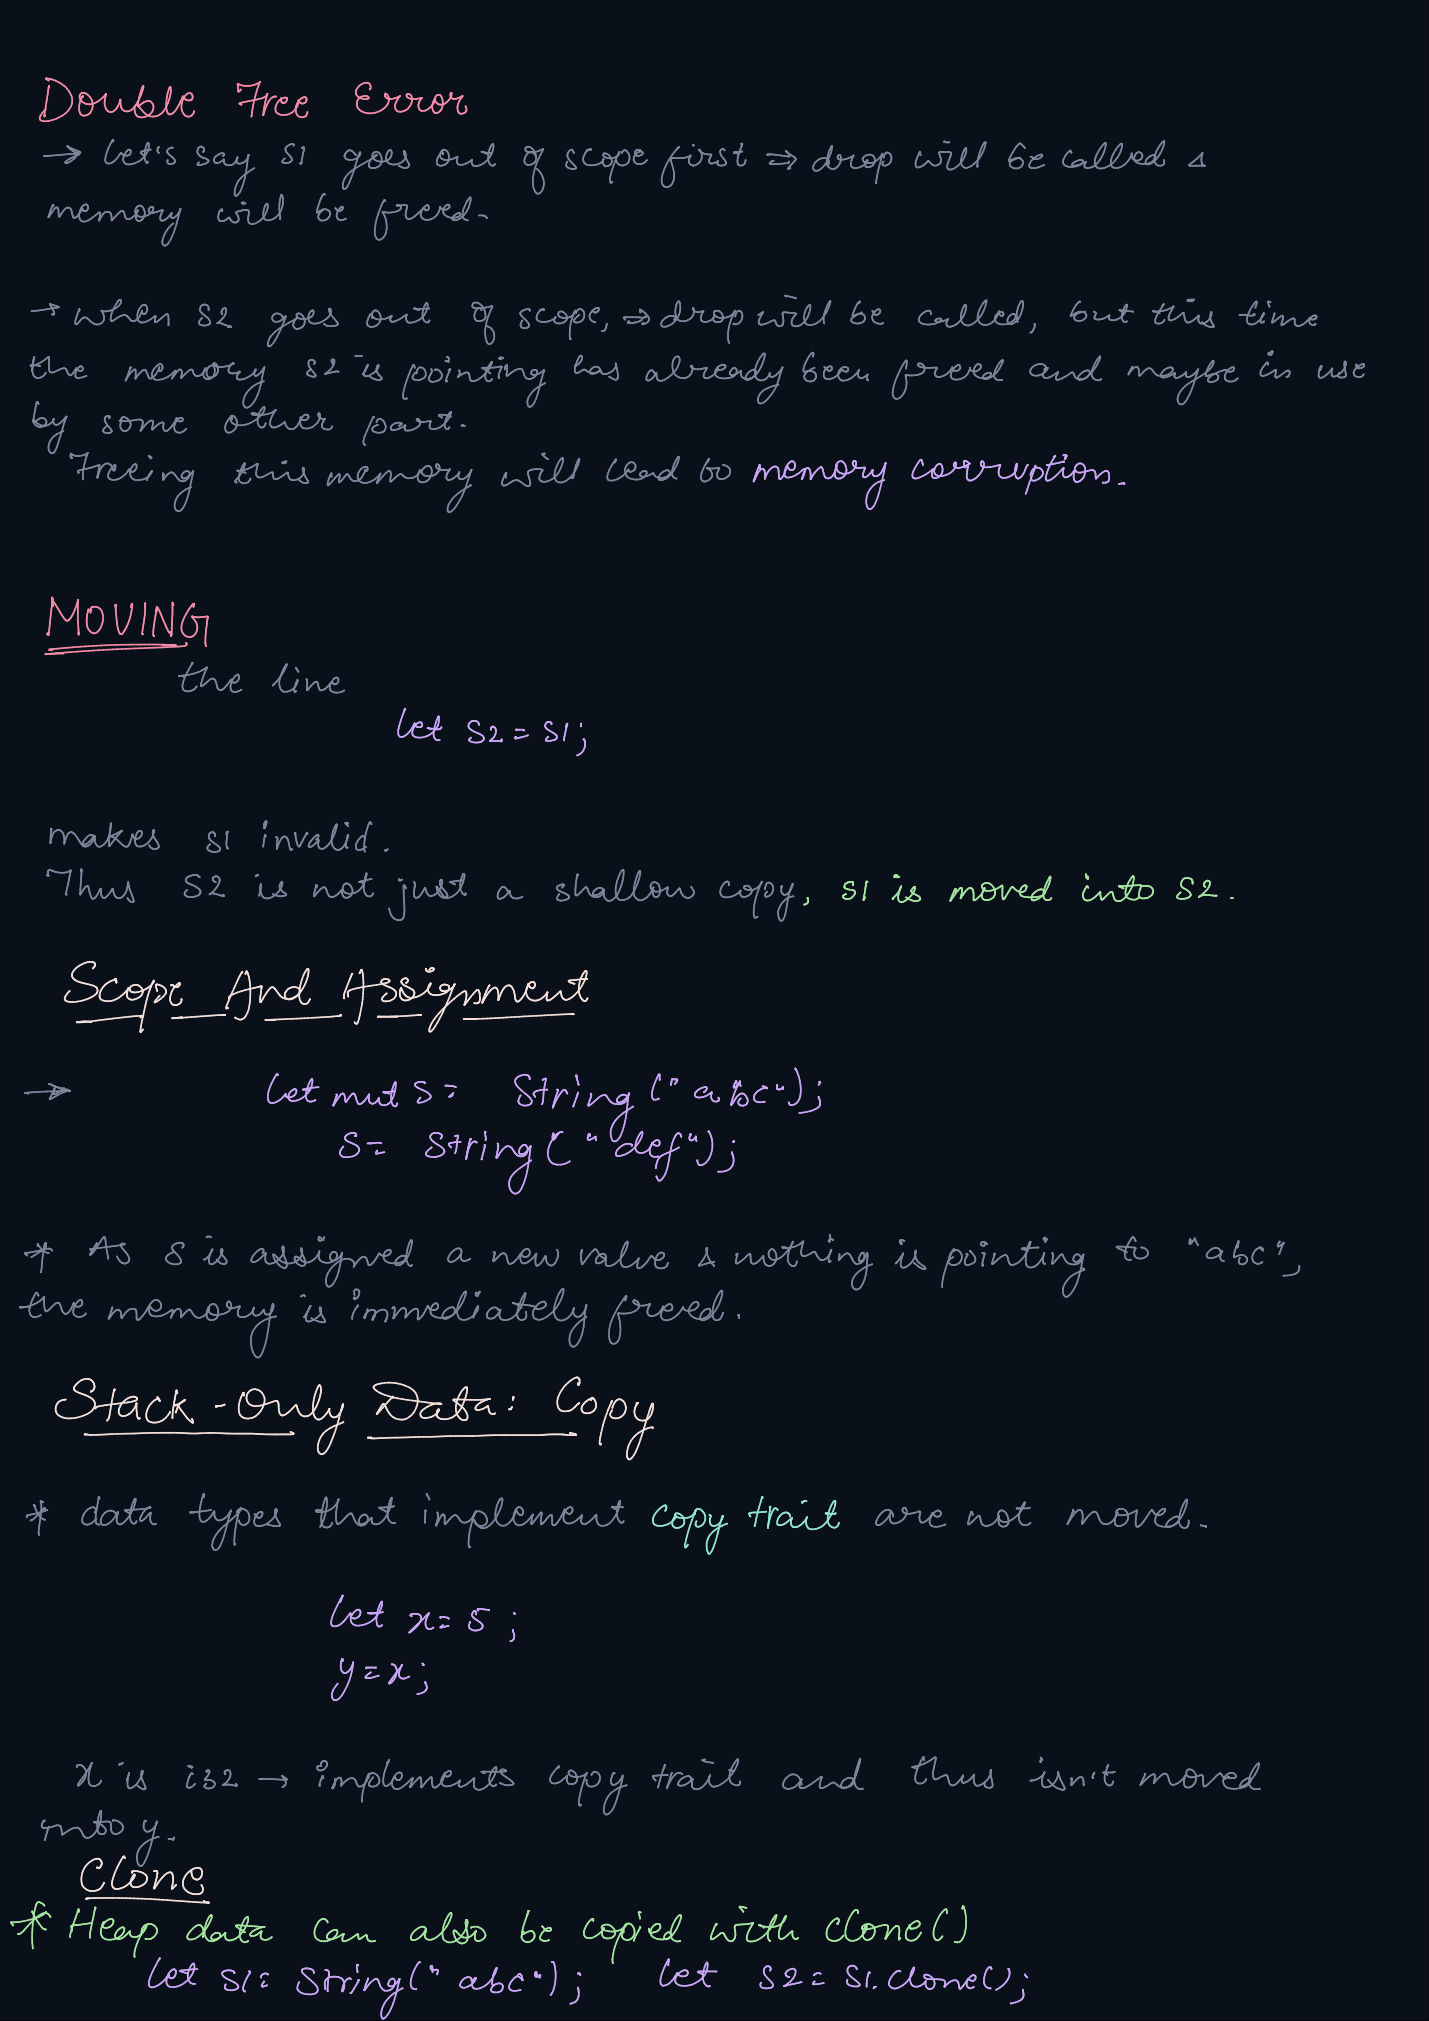 Double Free Error
→ let's say s1 goes out of scope first ⇒ drop will be called &
memory will be freed.
→ when s2 goes out of scope, ⇒ drop will be called, but this time
the memory s2 is pointing has already been freed and maybe in use
by some other part.
Freeing this memory will lead to memory corruption.
MOVING
the line
let s2 = s1;
makes s1 invalid.
Thus s2 is not just a shallow copy, s1 is moved into s2.
Scope And Assignment
→ let mut s = String("abc");
s = String("def");
* As s is assigned a new value & nothing is pointing to "abc",
the memory is immediately freed.
Stack-Only Data: Copy
* data types that implement copy trait are not moved.
let x = 5;
y = x;
x is i32 → implements copy trait and thus isn't moved
into y.
Clone
* Heap data can also be copied with clone()
let s1 = String("abc"); let s2 = s1.clone();